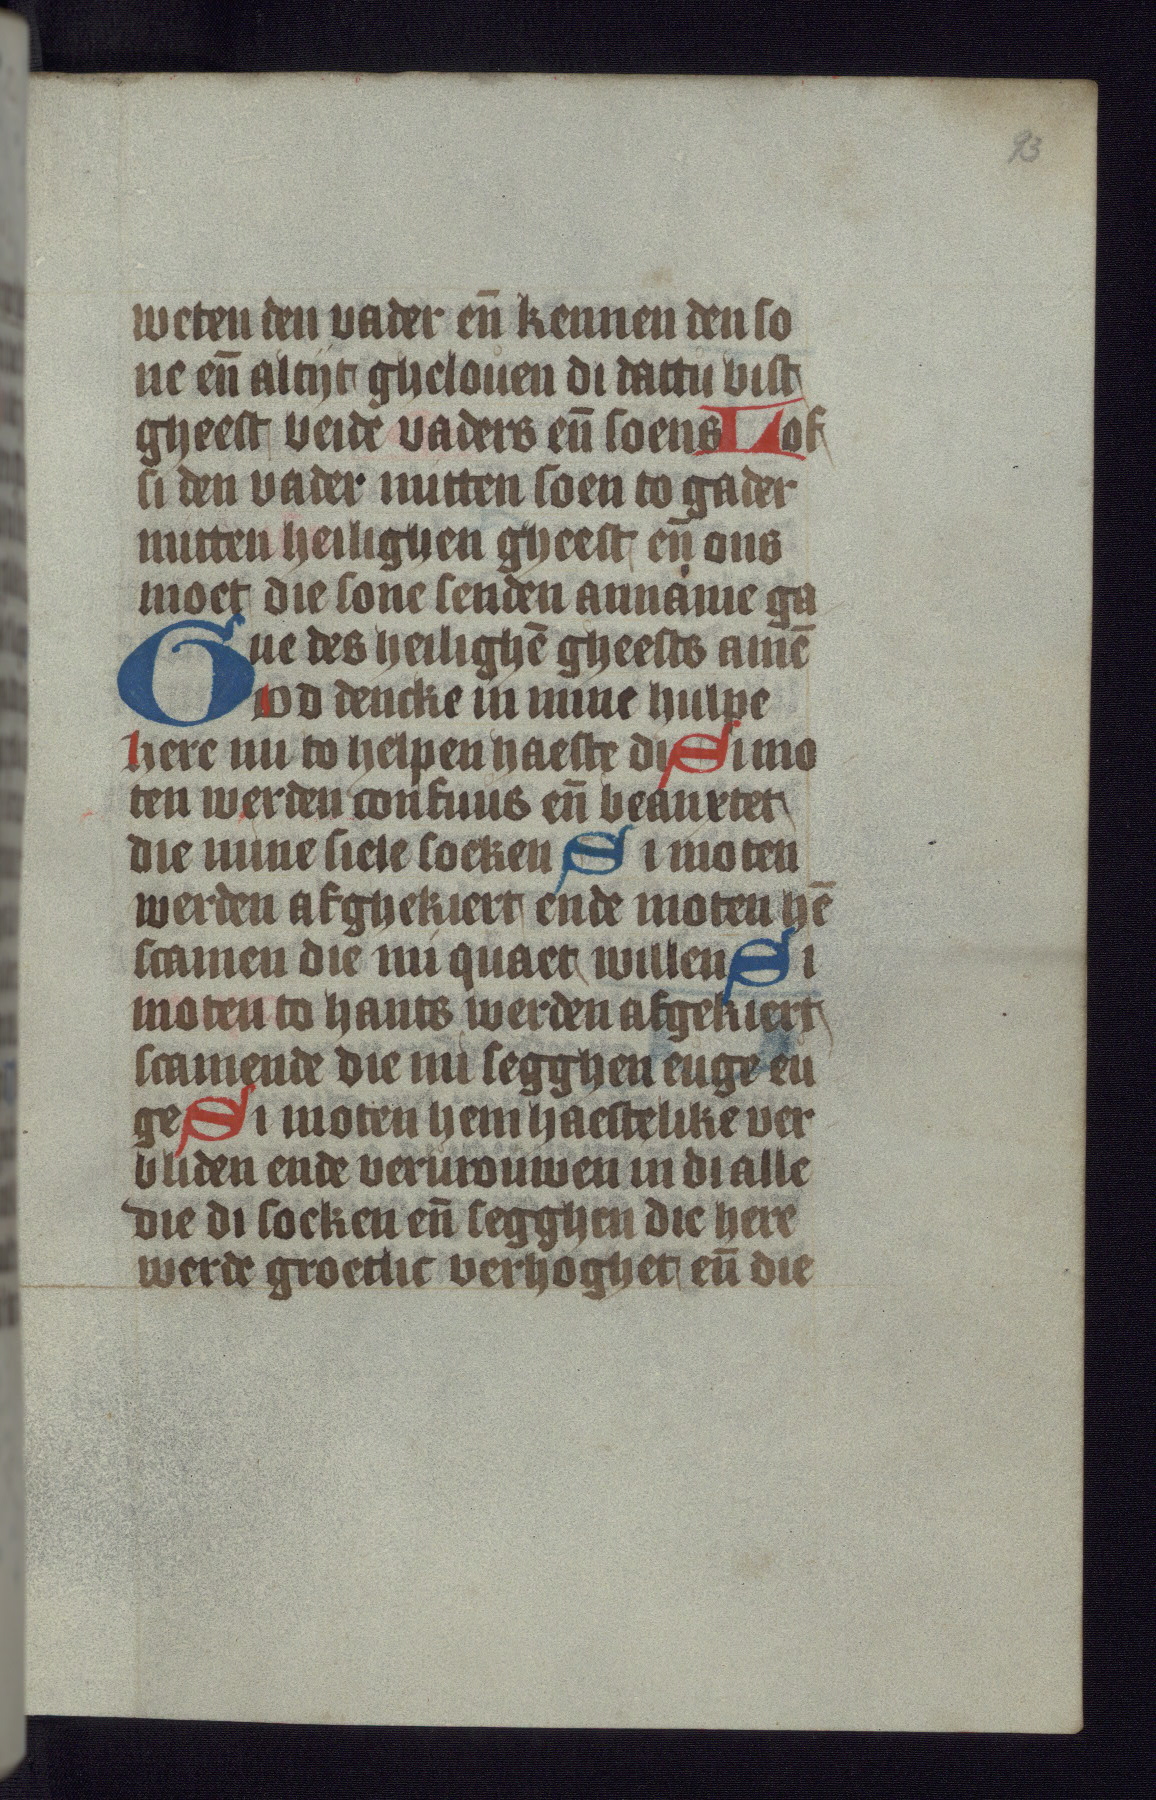 93
weten den vader en̄ kennen den so
ne en̄ altijt ghelouen di dattu bist
gheest beide vaders en̄ soens Lof
si den vader mitten soen to gader
mitten heilighen gheest en̄ ons
moet die sone senden an name ga
ue des heilighē gheests amē
God dencke in mine hulpe
here nu to helpen haeste di Si mo
ten werden confuus en̄ beanxtet
die mine siele soeken Si moten
werden afghekiert ende moten hē
scamen die mi quaet willen Si
moten to hants werden afgekiert
scamende die mi segghen euge eu
ge Si moten hem haestelike ver
bliden ende vervrouwen in di alle
die di soeken en̄ segghen die here
werde groetlic verhoghet en̄ die